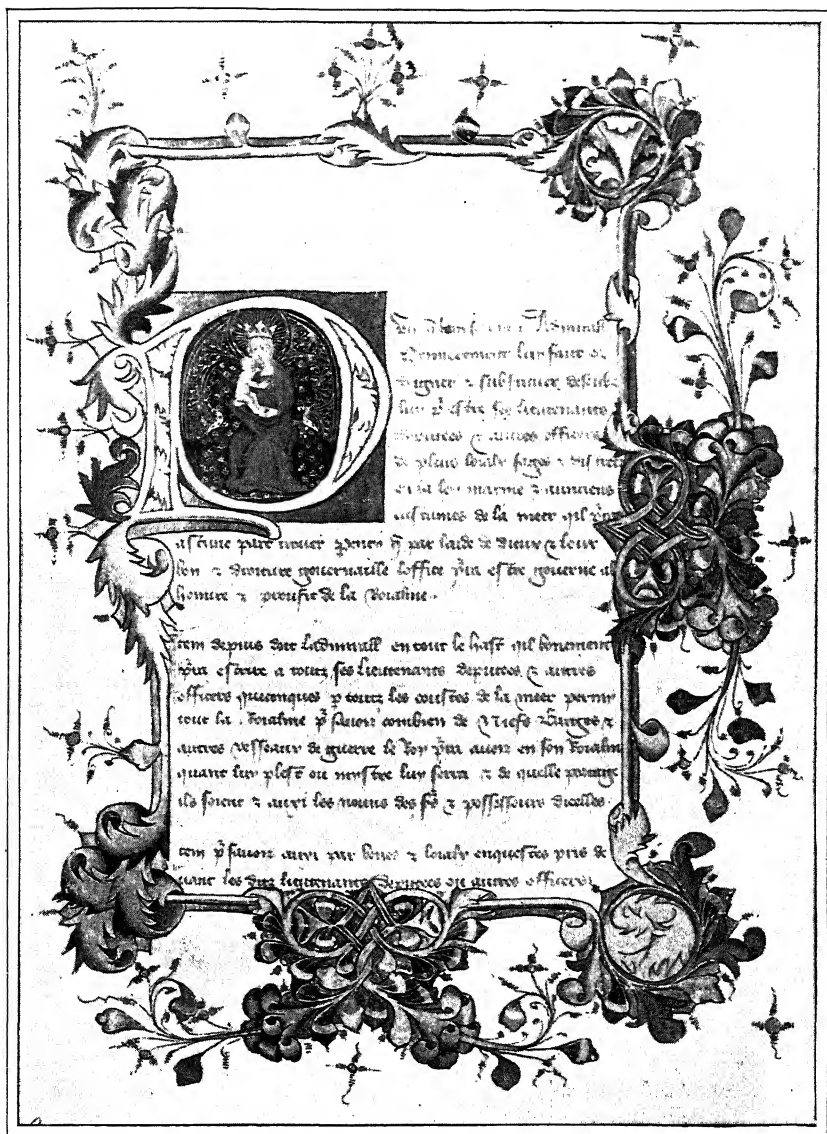 Admirall
premierement luy faut or
deigner & substituer desoubz
luy p̃ estre ses lieutenants
deputees & autres officers
de pluis loialx sages & discretes
en la loy marine & aunciens
custumes de la meer qil p̃ra
ascune part trouer q̃ par laide de dieux & leur
bon & droiture gouernaille loffice p̃ra estre gouerne al
honure & proufit de la Roialme
tem depuis doit ladmirall en tout le hast qil bonement
p̃ra escrire a toutz ses lieutenants deputees & autres
officers quiconques p̃ toutz les coustes de la meer parmy
tout la Roialme p̃ sauoir combien de Niefs Barges &
autres vesseaux de guerre le Roy p̃ra auoir en son Roialm
quant luy plest ou mystre luy serra & de quelle portage
ils soient & auxi les nouns des & possessours dicelles
tem p̃ sauoir auxi par bones & loialx enquestes pris de
uant les ditz lieutenants deputees ou autres officers